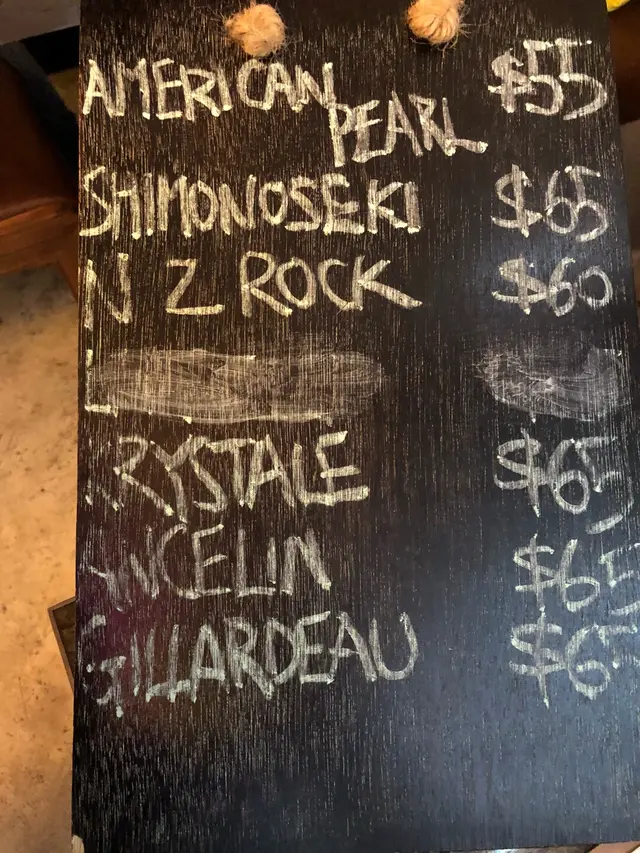 AMERICAN PEARL $55
SHIMONOSEKI $65
N Z ROCK $60
KRYSTALE $65
ANCELIN $65
GILLARDEAU $65